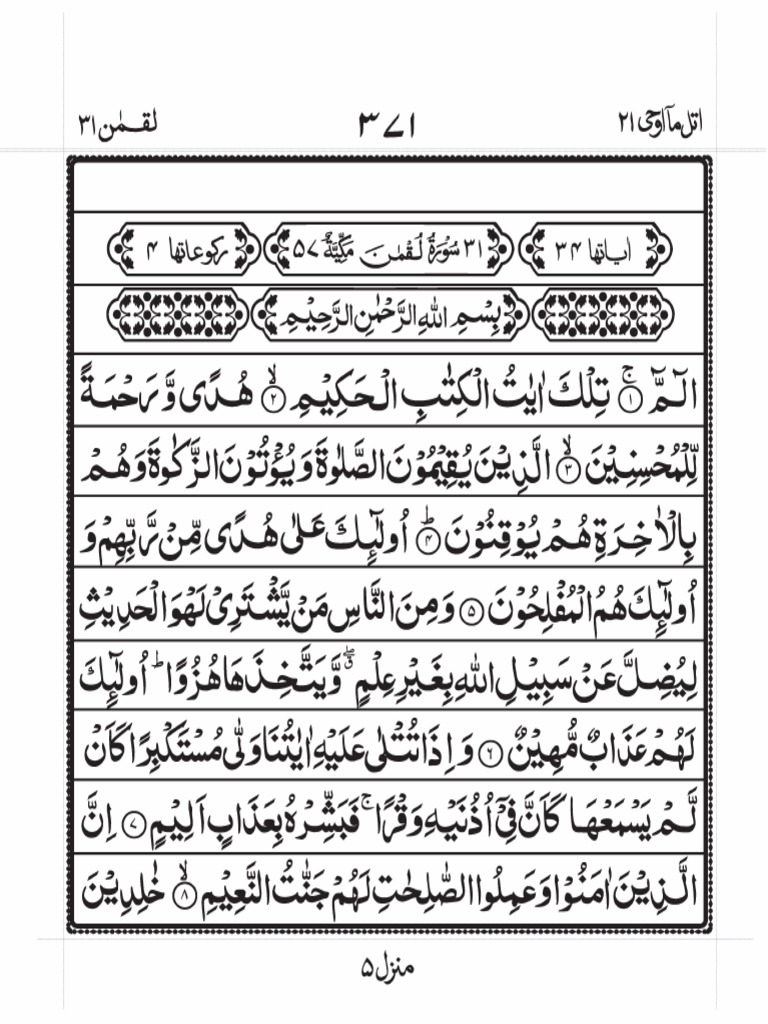 اتل ماۤ اوحی ۲۱
۳۷۱
لقمٰن ۳۱
اٰیاتها ۳۴
۳۱ سُوْرَةُ لُقْمٰنَ مَكِّیَّةٌ ۵۷
رکوعاتها ۴
بِسْمِ اللهِ الرَّحْمٰنِ الرَّحِیْمِ
الٓمّٓ ۚ﴿۱﴾ تِلْكَ اٰیٰتُ الْكِتٰبِ الْحَكِیْمِ ۙ﴿۲﴾ هُدًی وَّرَحْمَةً
لِّلْمُحْسِنِیْنَ ۙ﴿۳﴾ الَّذِیْنَ یُقِیْمُوْنَ الصَّلٰوةَ وَیُؤْتُوْنَ الزَّكٰوةَ وَهُمْ
بِالْاٰخِرَةِ هُمْ یُوْقِنُوْنَ ؕ﴿۴﴾ اُولٰٓئِكَ عَلٰی هُدًی مِّنْ رَّبِّهِمْ وَ
اُولٰٓئِكَ هُمُ الْمُفْلِحُوْنَ ﴿۵﴾ وَمِنَ النَّاسِ مَنْ یَّشْتَرِیْ لَهْوَ الْحَدِیْثِ
لِیُضِلَّ عَنْ سَبِیْلِ اللهِ بِغَیْرِ عِلْمٍ ۖۗ وَّیَتَّخِذَهَا هُزُوًا ؕ اُولٰٓئِكَ
لَهُمْ عَذَابٌ مُّهِیْنٌ ﴿۶﴾ وَاِذَا تُتْلٰی عَلَیْهِ اٰیٰتُنَا وَلّٰی مُسْتَكْبِرًا كَاَنْ
لَّمْ یَسْمَعْهَا كَاَنَّ فِیْۤ اُذُنَیْهِ وَقْرًا ۚ فَبَشِّرْهُ بِعَذَابٍ اَلِیْمٍ ﴿۷﴾ اِنَّ
الَّذِیْنَ اٰمَنُوْا وَعَمِلُوا الصّٰلِحٰتِ لَهُمْ جَنّٰتُ النَّعِیْمِ ۙ﴿۸﴾ خٰلِدِیْنَ
منزل ۵